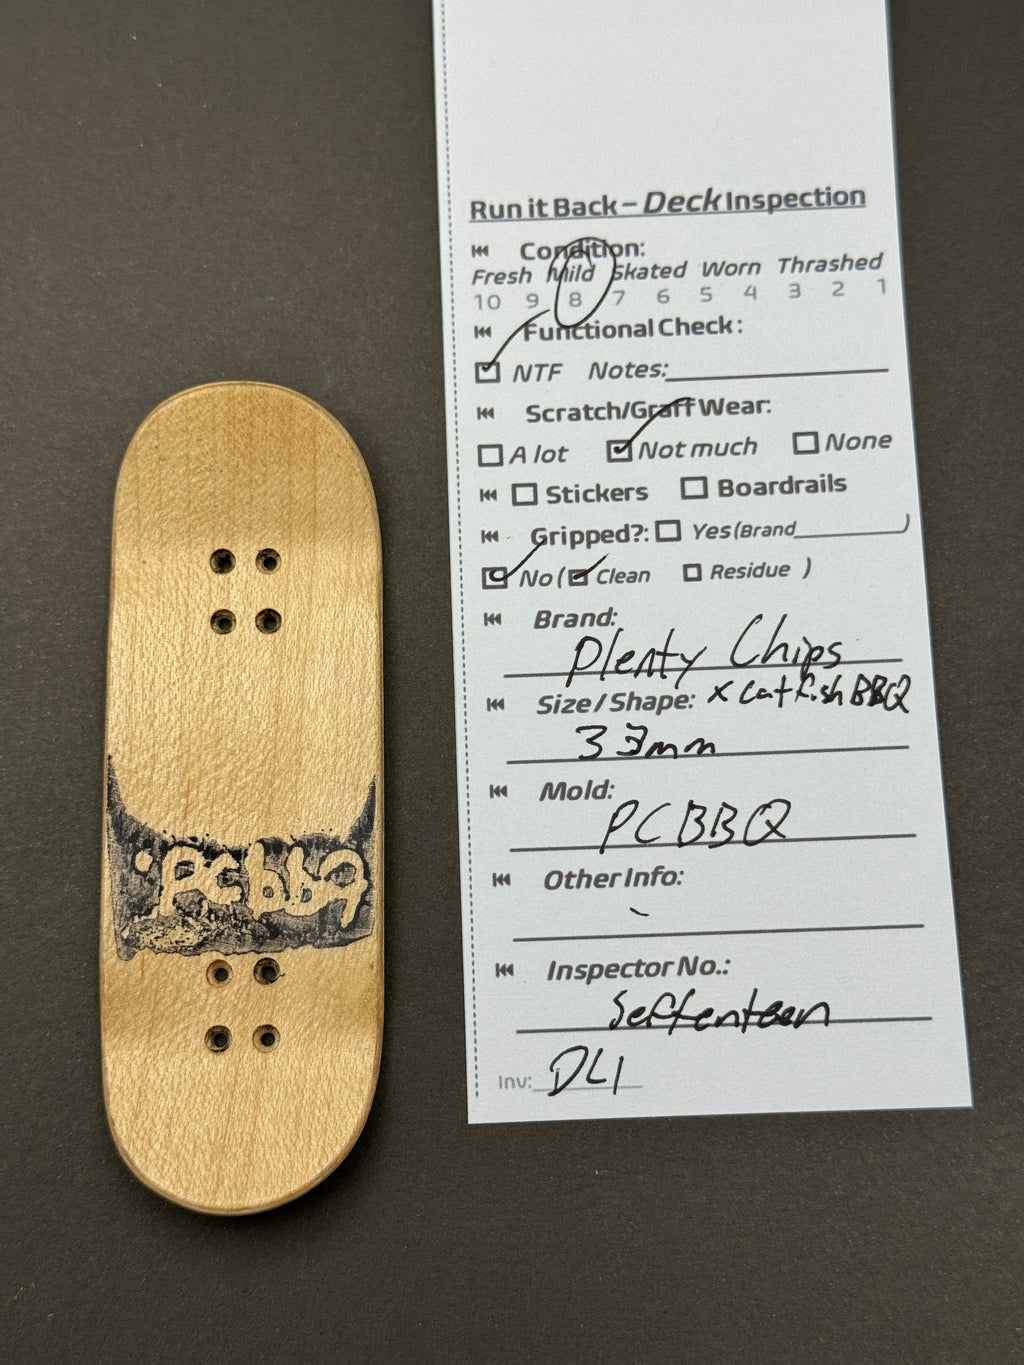 Run it Back – Deck Inspection
Condition:
Fresh Mild Skated Worn Thrashed
10 9 8 7 6 5 4 3 2 1
Functional Check:
NTF Notes:
Scratch/Graff Wear:
A lot Not much None
Stickers Boardrails
Gripped?: Yes (Brand )
No ( Clean Residue )
Brand:
Plenty Chips
x Catfish BBQ
Size / Shape:
33mm
Mold:
PCBBQ
Other Info:
Inspector No.:
Seffenteen
Inv: DL1
PCbbq